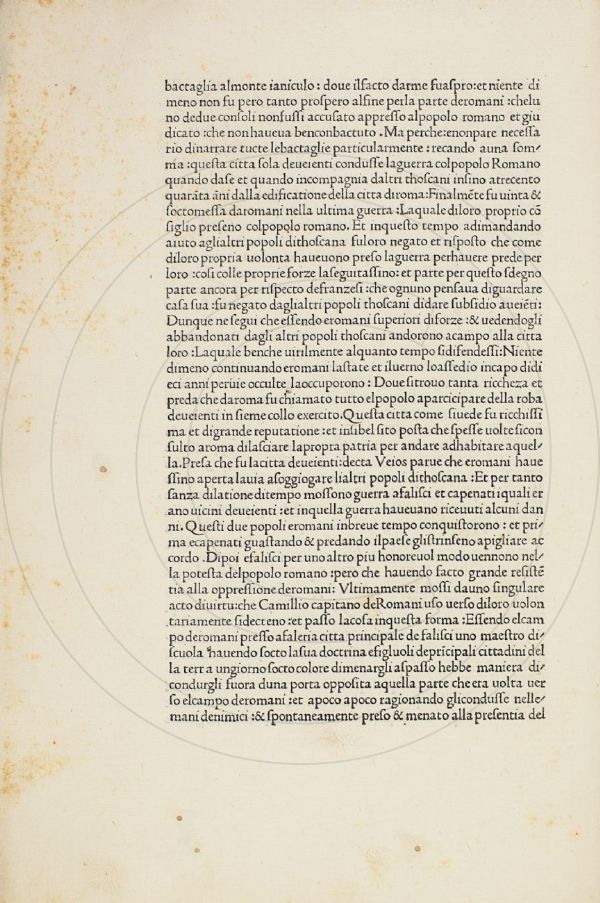 bactaglia almonte ianiculo : doue ilfacto darme fuaspro:et niente di
meno non fu pero tanto prospero alfine perla parte deromani :chelu
no dedue consoli nonfussi accusato appresso alpopolo romano et giu
dicato :che non haueua benconbactuto .Ma perche:enonpare necessa
rio dinarrare tucte lebactaglie particularmente : recando auna som⸗
ma :questa citta sola deueienti condusse laguerra colpopolo Romano
quando dase et quando incompagnia daltri thoscani insino atrecento
quarāta āni dalla edificatione della citta diroma:Finalmēte fu uinta &
soctomessa daromani nella ultima guerra :Laquale diloro proprio cō
siglio preseno colpopolo romano. Et inquesto tempo adimandando
aiuto aglialtri popoli dithoscana fuloro negato et risposto che come
diloro propria uolonta haueuono preso laguerra perhauere prede per
loro :cosi colle proprie forze laseguitassino :et parte per questo sdegno
parte ancora per rispecto defranzesi :che ognuno pensaua diguardare
casa sua :fu negato daglialtri popoli thoscani didare subsidio aueiēti:
Dunque ne segui che essendo eromani superiori diforze :& uedendogli
abbandonati dagli altri popoli thoscani andorono acampo alla citta
loro :Laquale benche uirilmente alquanto tempo sidifendessi:Niente
dimeno continuando eromani lastate et iluerno loassedio incapo didi
eci anni peruie occulte laoccuporono : Doue sitrouo tanta riccheza et
preda che daroma fu chiamato tutto elpopolo aparicipare della roba
deueienti in sieme collo exercito.Questa citta come siuede fu ricchissi
ma et digrande reputatione :et insibel sito posta che spesse uolte sicon
sulto aroma dilasciare lapropra patria per andare adhabitare aquel⸗
la.Presa che fu lacitta deueienti:decta Veios parue che eromani haue
ssino aperta lauia asoggiogare lialtri popoli dithoscana :Et per tanto
sanza dilatione ditempo mossono guerra afalisci et capenati iquali er
ano uicini deueienti :et inquella guerra haueuano riceuuti alcuni dan
ni .Questi due popoli eromani inbreue tempo conquistorono : et pri⸗
ma ecapenati guastando & predando ilpaese glistrinseno apigliare ac
cordo .Dipoi efalisci per uno altro piu honoreuol modo uennono nel⸗
la potesta delpopolo romano :pero che hauendo facto grande resistē
tia alla oppressione deromani: Vltimamente mossi dauno singulare
acto diuirtu:che Camillio capitano deRomani uso uerso diloro uolon
tariamente sidecteno :et passo lacosa inquesta forma :Essendo elcam
po deromani presso afaleria citta principale de falisci uno maestro di⸗
scuola hauendo socto lasua doctrina efigluoli depricipali cittadini del
la terra ungiorno socto colore dimenargli aspasso hebbe maniera di⸗
condurgli fuora duna porta opposita aquella parte che era uolta uer
so elcampo deromani :et apoco apoco ragionando glicondusse nelle⸗
mani denimici :& spontaneamente preso & menato alla presentia del